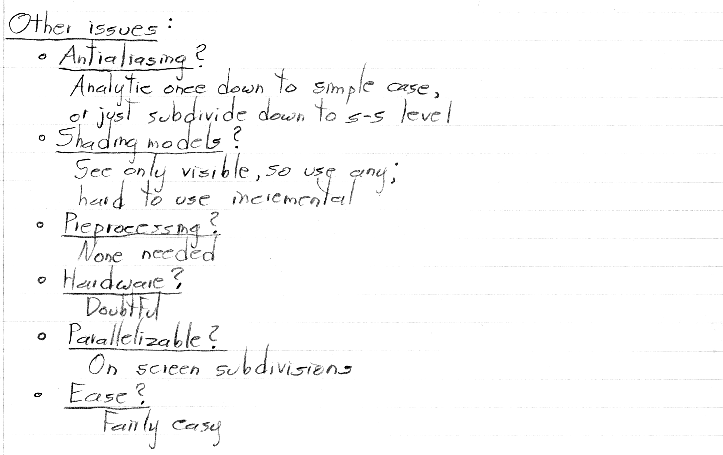 Other issues:
• Antialiasing?
Analytic once down to simple case,
or just subdivide down to s-s level
• Shading models?
See only visible, so use any;
hard to use incremental
• Preprocessing?
None needed
• Hardware?
Doubtful
• Parallelizable?
On screen subdivisions
• Ease?
Fairly easy